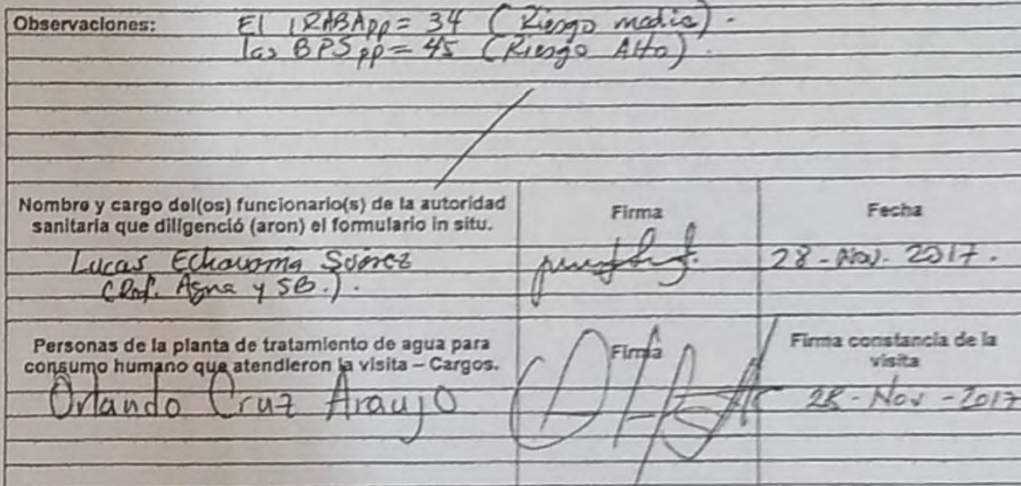 Observaciones: El IRABApp = 34 (Riesgo medio).
las BPSpp = 45 (Riesgo Alto).
Nombre y cargo del(os) funcionario(s) de la autoridad
sanitaria que diligenció (aron) el formulario in situ.
Firma
Fecha
Lucas Echavarría Suárez
(Prof. Agua y SB.).
28-Nov. 2017.
Personas de la planta de tratamiento de agua para
consumo humano que atendieron la visita – Cargos.
Firma
Firma constancia de la
visita
Orlando Cruz Araujo
28-Nov-2017